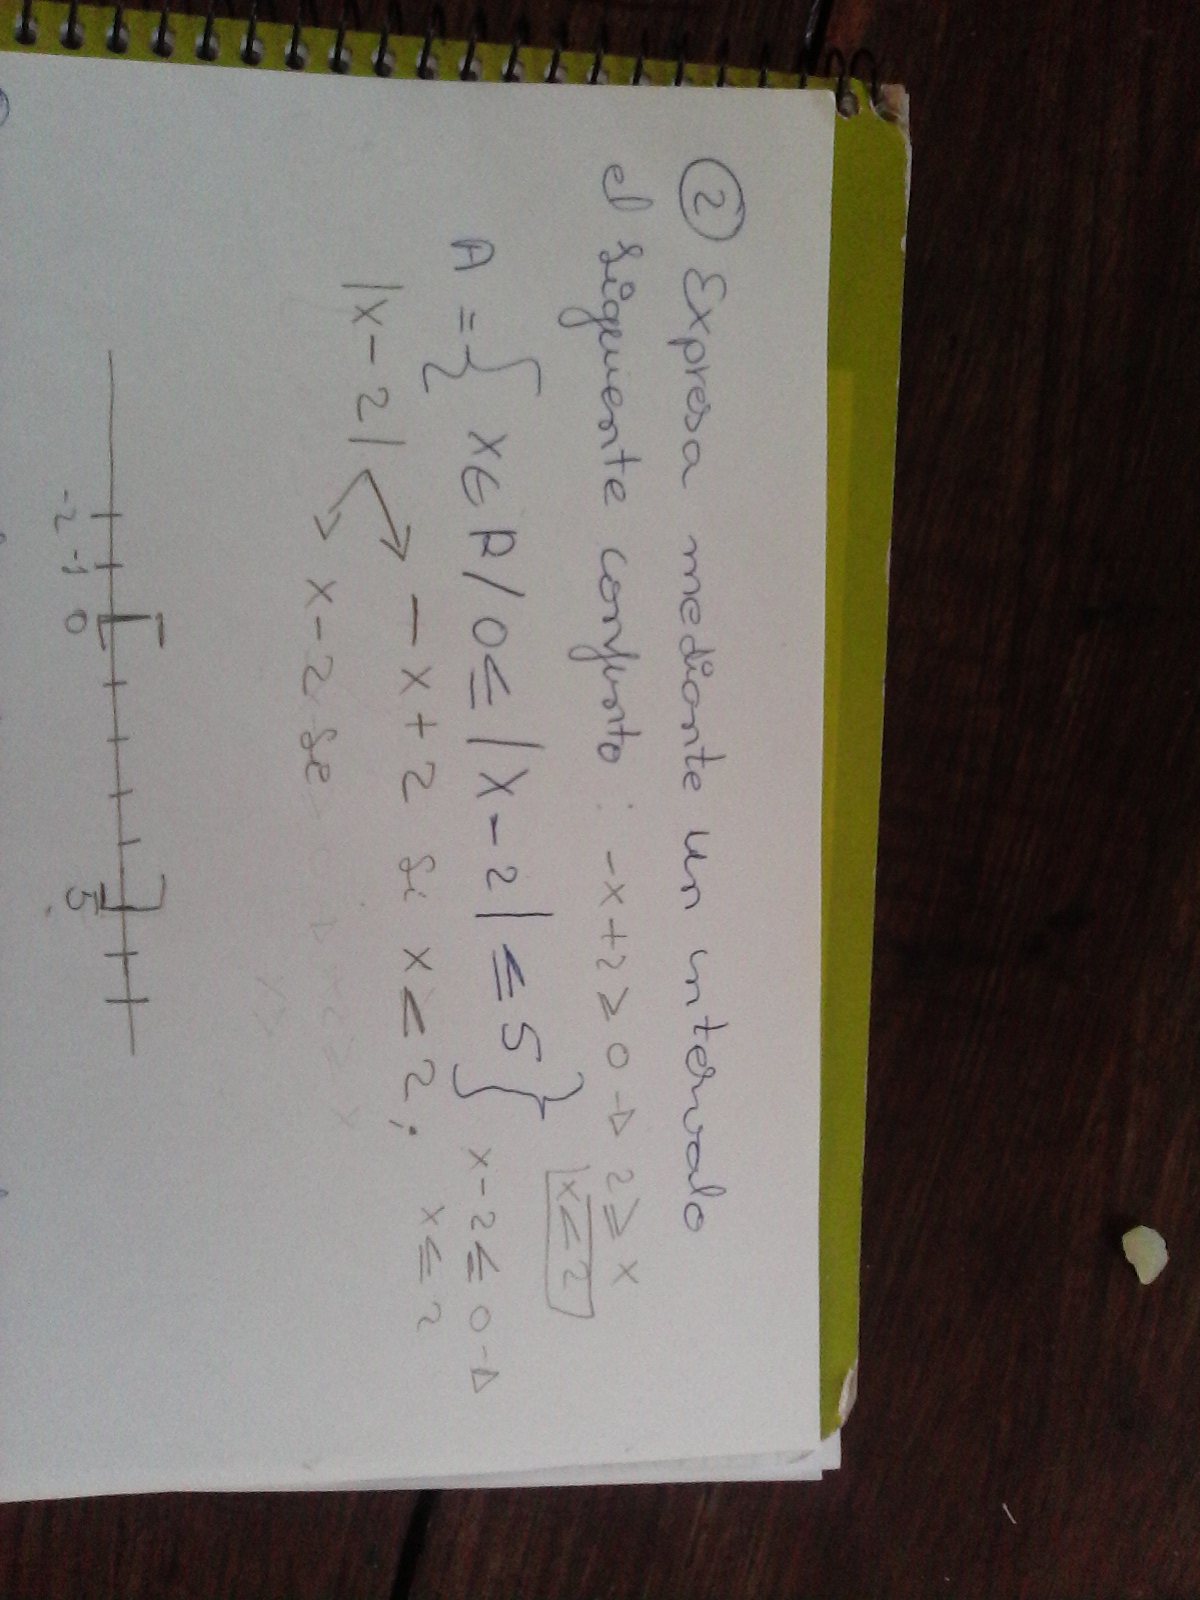 ② Expresa mediante un intervalo
el siguiente conjunto : -x+2 ≥ 0 → 2 ≥ x
x ≤ 2
A = { x ∈ R / 0 ≤ |x-2| ≤ 5 } x-2 ≤ 0 →
x ≤ 2
|x-2| -x+2 si x ≤ 2;
x-2 se
-2 -1 0 5